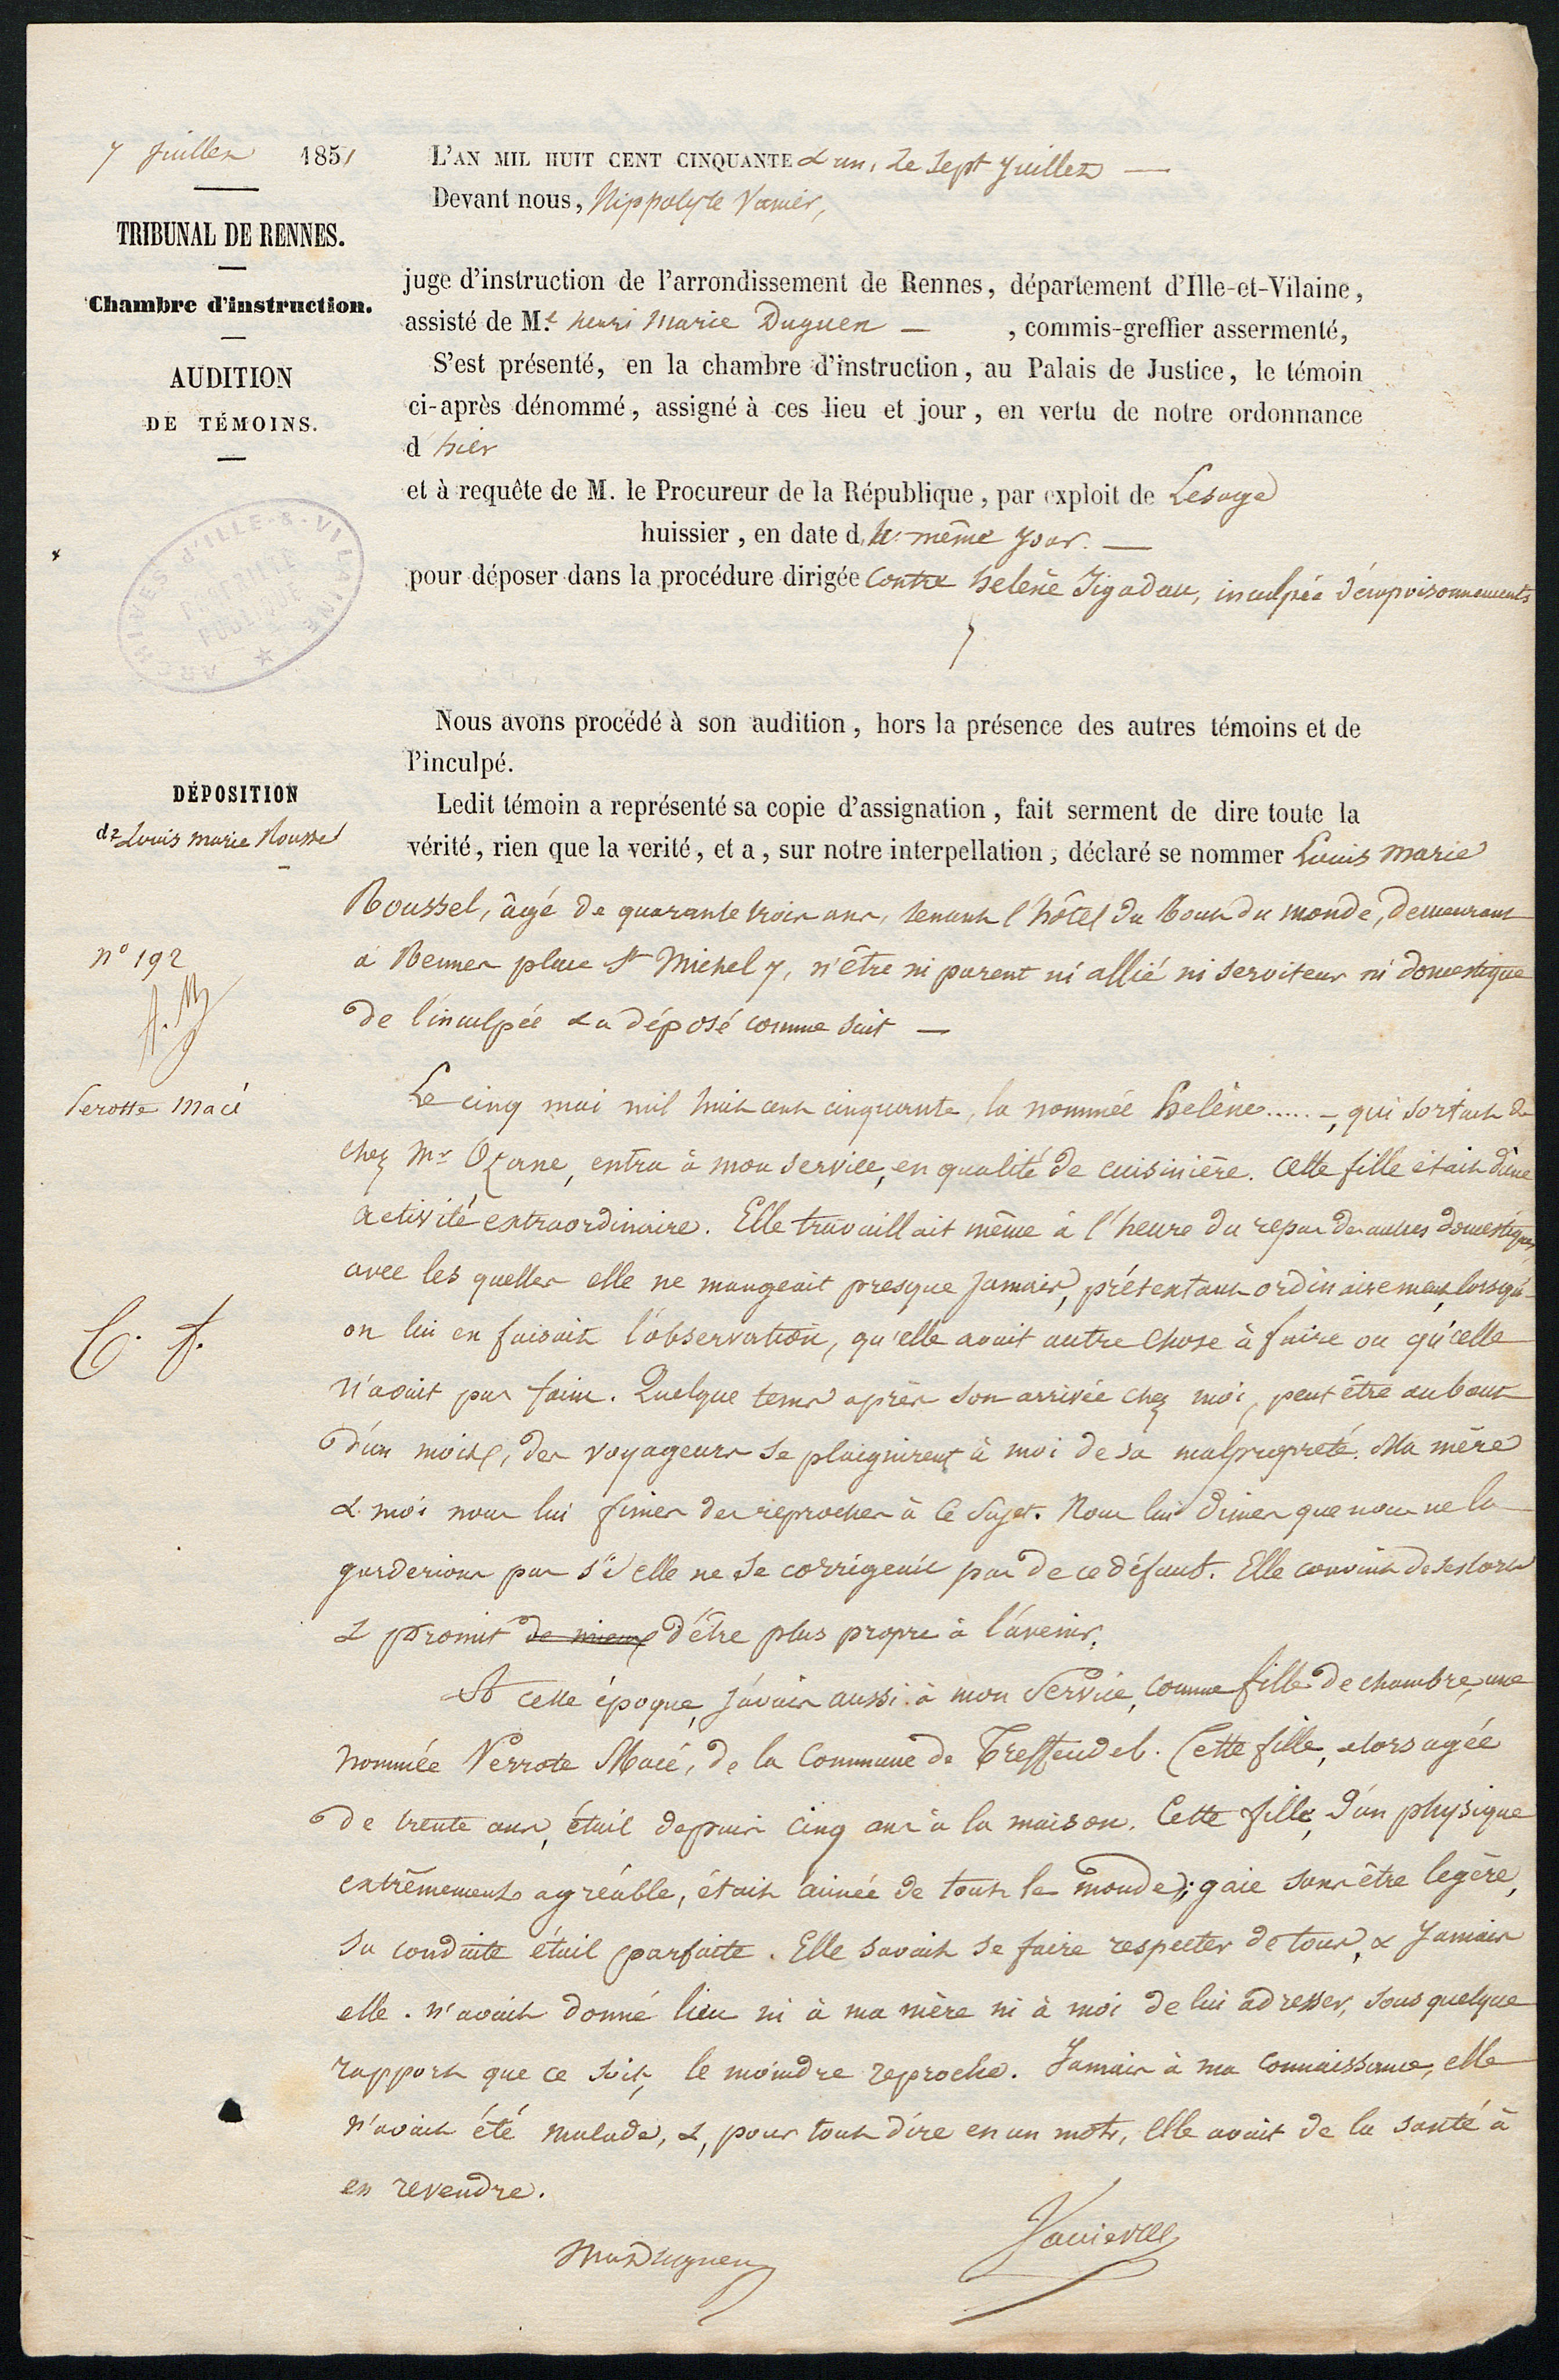 7 Juillet 1851
TRIBUNAL DE RENNES.
Chambre d'instruction.
AUDITION
DE TÉMOINS.
ARCHIVES D'ILLE-&-VILAINE
PROPRIÉTÉ
PUBLIQUE
L'AN MIL HUIT CENT CINQUANTE & un, Le Sept Juillet
Devant nous, Hippolyte Vannier,
juge d'instruction de l'arrondissement de Rennes, département d'Ille-et-Vilaine,
assisté de M.e henri Marie Duguen , commis-greffier assermenté,
S'est présenté, en la chambre d'instruction, au Palais de Justice, le témoin
ci-après dénommé, assigné à ces lieu et jour, en vertu de notre ordonnance
d'hier
et à requête de M. le Procureur de la République, par exploit de Lesage
huissier, en date du même jour.
pour déposer dans la procédure dirigée Contre helène Jigadau, inculpée d'empoisonnements
Nous avons procédé à son audition, hors la présence des autres témoins et de
l'inculpé.
DÉPOSITION
de Louis marie Roussel
n° 192
Perotte Macé
Ledit témoin a représenté sa copie d'assignation, fait serment de dire toute la
vérité, rien que la verité, et a, sur notre interpellation, déclaré se nommer Louis Marie
Roussel, âgé de quarante trois ans, tenant l'hôtel du Bout du monde, demeurant
à Rennes place St Michel 7, n'être ni parent ni allié ni serviteur ni domestique
de l'inculpée & a déposé comme suit —
Le cinq mai mil huit cent cinquante, la nommée helène....., qui sortait de
chez Mr Ozanne, entra à mon service, en qualité de cuisinière. Cette fille était d'une
activité extraordinaire. Elle travaillait même à l'heure du repas des autres domestiques
avec les quelles elle ne mangeait presque jamais, prétextant ordinairement, lorsqu'
on lui en faisait l'observation, qu'elle avait autre chose à faire ou qu'elle
n'avait pas faim. Quelque tems après son arrivée chez moi, peut être au bout
d'un mois, des voyageurs se plaignirent à moi de sa malpropreté. Ma mère
& moi nous lui fimes des reproches à ce sujet. Nous lui dimes que nous ne la
garderions pas si elle ne se corrigeait pas de ce défaut. Elle convint de ses torts
& promit de mieux d'être plus propre à l'avenir.
A cette époque, j'avais aussi à mon Service, comme fille de chambre, une
nommée Perrote Macé, de la Commune de Treffendel. Cette fille, alors agée
de trente ans, était depuis cinq ans à la maison. Cette fille, d'un physique
extrêmement agréable, était aimée de tout le monde; gaie sans être legère,
sa conduite était parfaite. Elle savait se faire respecter de tous, & Jamais
elle n'avait donné lieu ni à ma mère ni à moi de lui adresser, sous quelque
rapport que ce soit, le moindre reproche. Jamais à ma connaissance, elle
n'avait été malade, &, pour tout dire en un mot, Elle avait de la santé à
en revendre.